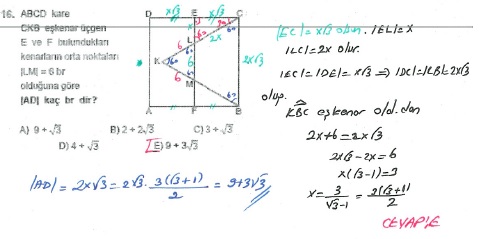 16. ABCD kare
CKB eşkenar üçgen
E ve F bulundukları
kenarların orta noktaları
|LM| = 6 br
olduğuna göre
|AD| kaç br dir?
A) 9 + √3 B) 2 + 2√3 C) 3 + √3
D) 4 + √3 E) 9 + 3√3
D x√3 E x√3 C
x 60 30
L 2x
60
6
K 60 6 2x√3
6 60
M
60
A F B
|EC| = x√3 olsun. |EL| = x
|LC| = 2x olur.
|EC| = |DE| = x√3 ⇒ |DC| = |CB| = 2x√3
olup.
KBC eşkenar old.dan
2x + 6 = 2x√3
2x√3 - 2x = 6
x(√3 - 1) = 3
x = 3/(√3 - 1) = 3(√3 + 1)/2
|AD| = 2x√3 = 2√3 · 3(√3 + 1)/2 = 9 + 3√3
CEVAP: E